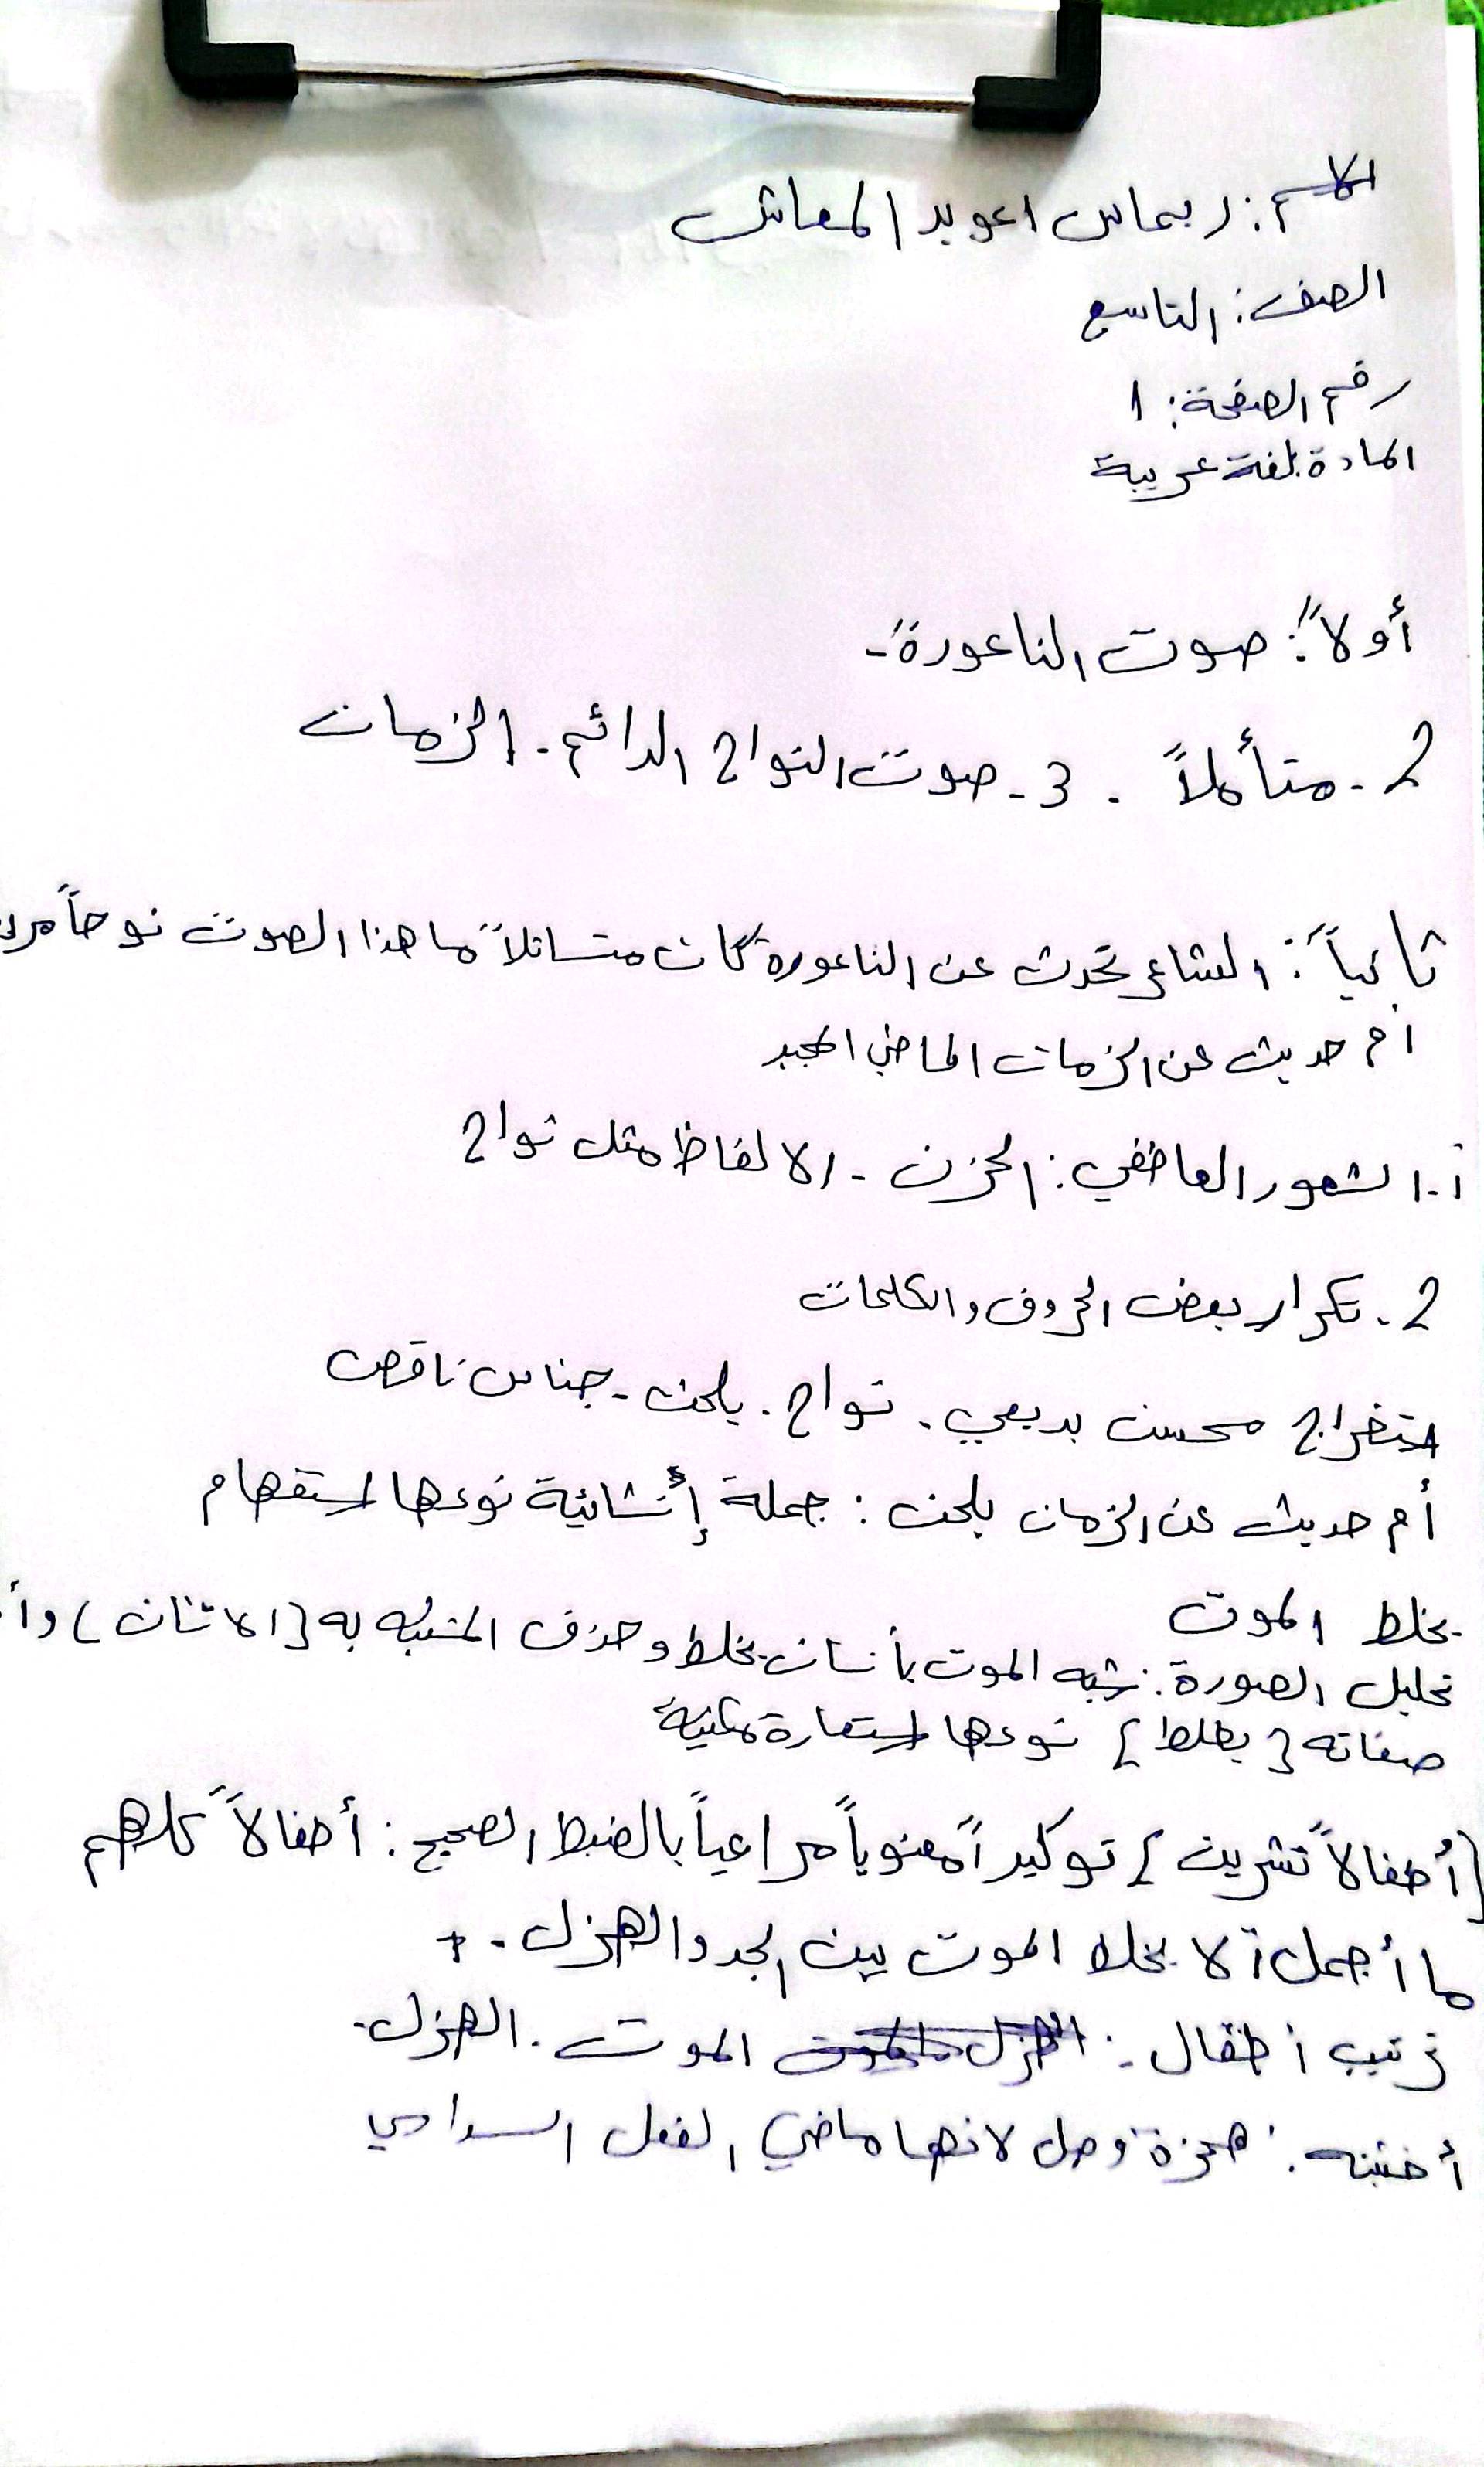 الاسم: ريماس اعويد المعاش
الصف: التاسع
رقم الصفحة: ١
المادة: لغة عربية
أولاً: صوت الناعورة:-
2 - متأملاً . 3 - صوت النواح الدائم - الزمان
ثانياً: الشاعر تحدث عن الناعورة كان متسائلاً ما هذا الصوت نوحاً
أم حديث عن الزمان الماضي المجيد
أ-١ لشعور العاطفي: الحزن - الالفاظ مثل نواح
2 - تكرار بعض الحروف والكلمات
استخراج محسن بديعي . نواح . بلحن - جناس ناقص
أم حديث عن الزمان بلحن : جملة إنشائية نوعها استفهام
يخلط الموت
تحليل الصورة: شبه الموت بأنسان يخلط وحذف المشبه به {الانسان} وأ
صفاته {يخلط} نوعها استعارة مكنية
[أطفالاً تشرين] توكيداً معنوياً مراعياً بالضبط الصحيح: أطفالاً كلهم
ما أجمل ألا يخلط الموت بين الجد والهزل .
ترتيب أطفال : الموت . الهزل.
همزة وصل لانها ماضي الفعل السداسي